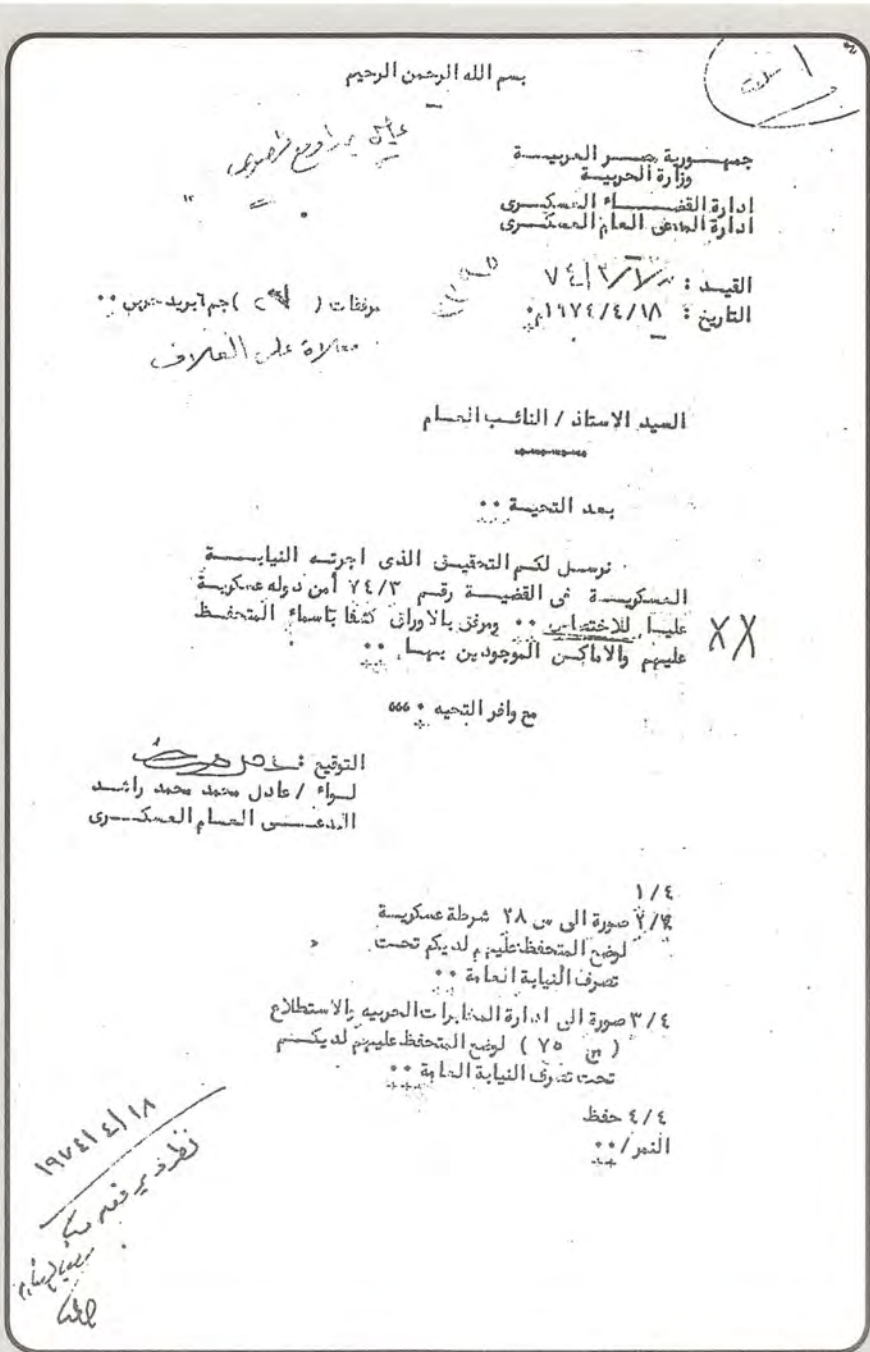 بسم الله الرحمن الرحيم
جمهورية مصر العربية
وزارة الحربية
ادارة القضاء العسكرى
ادارة المدعى العام العسكرى
القيد : ٧٤/٣
التاريخ : ١٩٧٤/٤/١٨م
مرفقات ( )
على الغلاف
السيد الاستاذ / النائب العام
بعد التحية ..
نرسل لكم التحقيق الذى اجرته النيابة
العسكرية فى القضية رقم ٧٤/٣ أمن دوله عسكرية
عليا للاختصاص .. ومرفق بالاوراق كشفا باسماء المتحفظ
عليهم والاماكن الموجودين بها ..
XX
مع وافر التحيه .
التوقيع :
لواء / عادل محمد محمد راشد
المدعى العام العسكرى
١/٤
٢/٤ صورة الى س ٢٨ شرطة عسكرية
لوضع المتحفظ عليهم لديكم تحت
تصرف النيابة العامة ..
٣/٤ صورة الى ادارة المخابرات الحربيه والاستطلاع
( س ٧٥ ) لوضع المتحفظ عليهم لديكم
تحت تصرف النيابة العامة ..
٤/٤ حفظ
النمر/..
١٩٧٤/٤/١٨